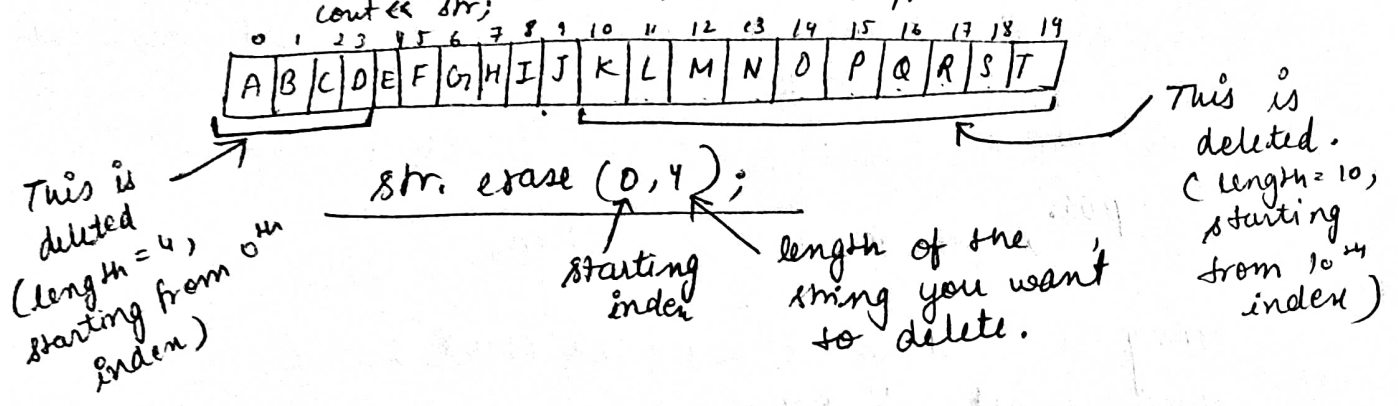 cout << str;
0 1 2 3 4 5 6 7 8 9 10 11 12 13 14 15 16 17 18 19
A B C D E F G H I J K L M N O P Q R S T
This is
deleted
(length = 4,
starting from 0th
index)
str. erase (0,4);
starting
index
length of the
string you want
to delete.
This is
deleted.
(length = 10,
starting
from 10th
index)